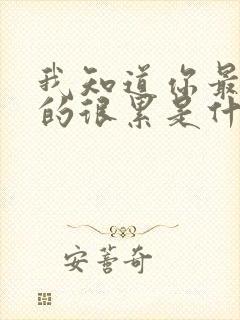 我知道你最
的很累是什
安蒼奇